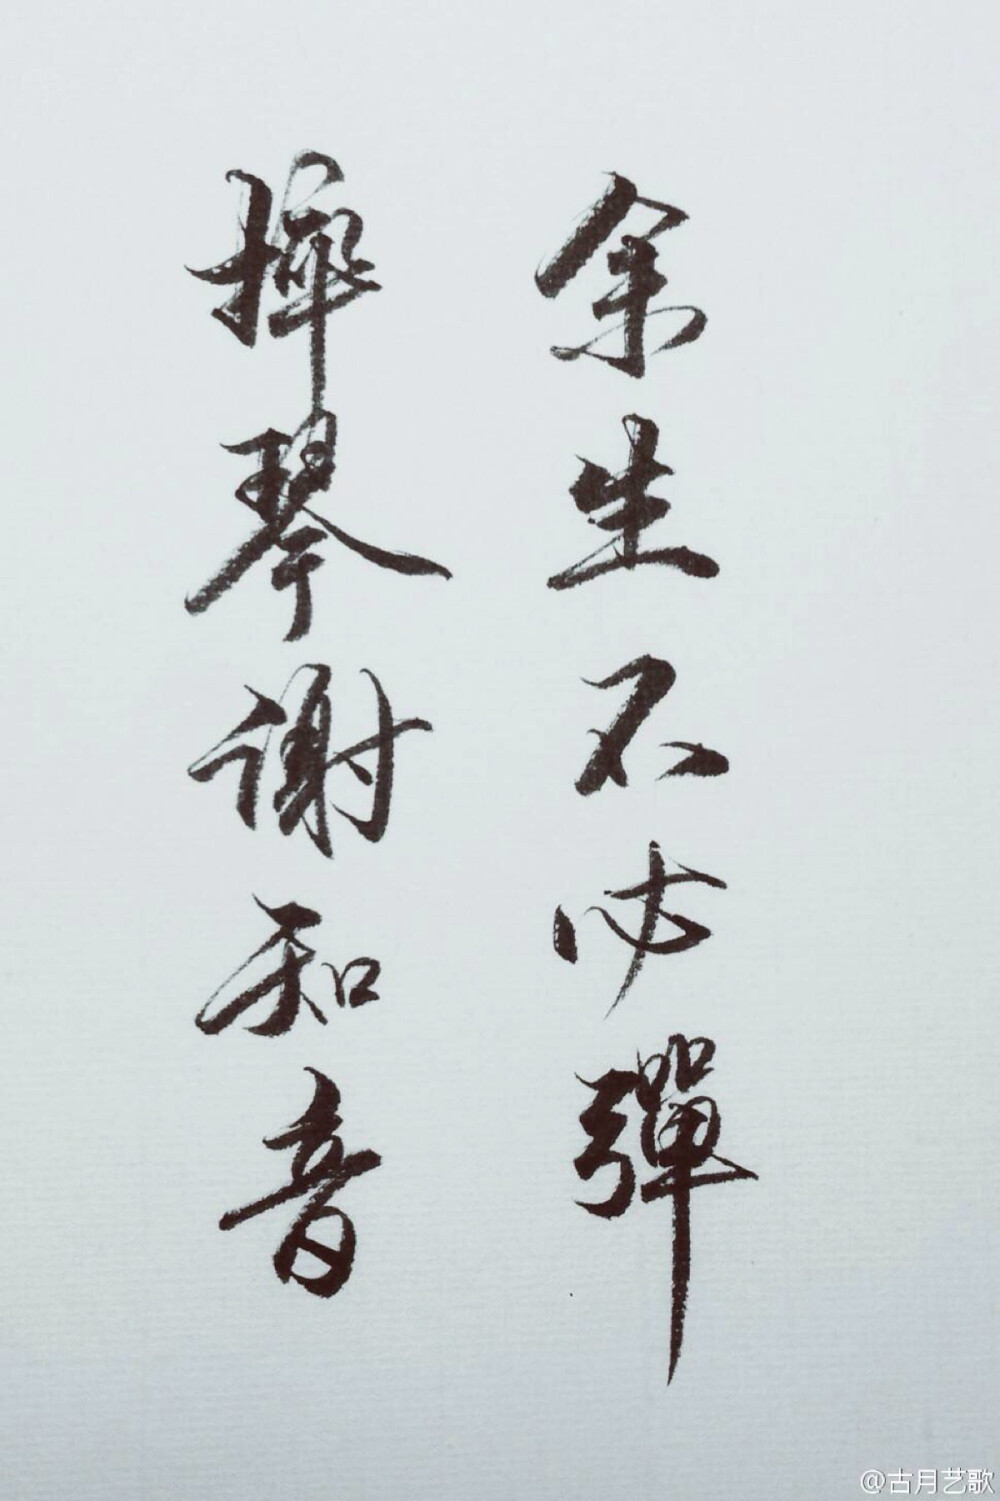 余生不必彈
摔琴谢知音
@古月艺歌